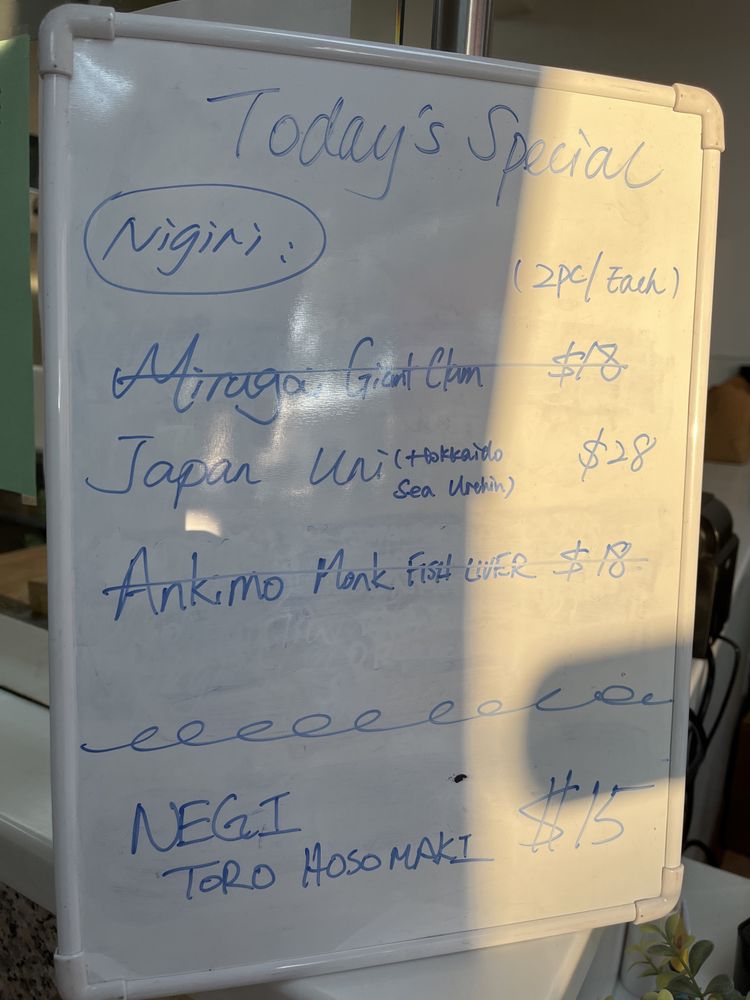 Today's Special
Nigiri:
(2pc/Each)
Mirugai Giant Clam $18
Japan Uni (Hokkaido Sea Urchin) $28
Ankimo Monk FISH LIVER $18
NEGI
TORO HOSOMAKI $15